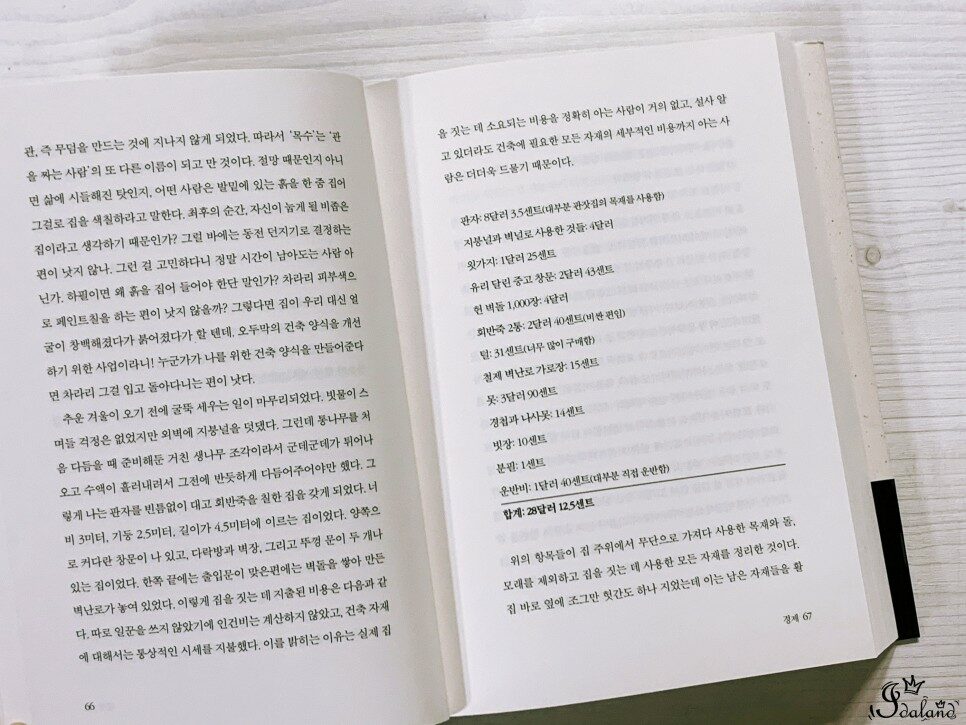 관, 즉 무덤을 만드는 것에 지나지 않게 되었다. 따라서 '목수'는 '관
을 짜는 사람'의 또 다른 이름이 되고 만 것이다. 절망 때문인지 아니
면 삶에 시들해진 탓인지, 어떤 사람은 발밑에 있는 흙을 한 줌 집어
그걸로 집을 색칠하라고 말한다. 최후의 순간, 자신이 눕게 될 비좁은
집이라고 생각하기 때문인가? 그럴 바에는 동전 던지기로 결정하는
편이 낫지 않나. 그런 걸 고민하다니 정말 시간이 남아도는 사람 아
닌가. 하필이면 왜 흙을 집어 들어야 한단 말인가? 차라리 피부색으
로 페인트칠을 하는 편이 낫지 않을까? 그렇다면 집이 우리 대신 얼
굴이 창백해졌다가 붉어졌다가 할 텐데, 오두막의 건축 양식을 개선
하기 위한 사업이라니! 누군가가 나를 위한 건축 양식을 만들어준다
면 차라리 그걸 입고 돌아다니는 편이 낫다.
추운 겨울이 오기 전에 굴뚝 세우는 일이 마무리되었다. 빗물이 스
며들 걱정은 없었지만 외벽에 지붕널을 덧댔다. 그런데 통나무를 처
음 다듬을 때 준비해둔 거친 생나무 조각이라서 군데군데가 튀어나
오고 수액이 흘러내려서 그전에 반듯하게 다듬어주어야만 했다. 그
렇게 나는 판자를 빈틈없이 대고 회반죽을 칠한 집을 갖게 되었다. 너
비 3미터, 기둥 2.5미터, 길이가 4.5미터에 이르는 집이었다. 양쪽으
로 커다란 창문이 나 있고, 다락방과 벽장, 그리고 뚜껑 문이 두 개나
있는 집이었다. 한쪽 끝에는 출입문이 맞은편에는 벽돌을 쌓아 만든
벽난로가 놓여 있었다. 이렇게 집을 짓는 데 지출된 비용은 다음과 같
다. 따로 일꾼을 쓰지 않았기에 인건비는 계산하지 않았고, 건축 자재
에 대해서는 통상적인 시세를 지불했다. 이를 밝히는 이유는 실제 집
66
을 짓는 데 소요되는 비용을 정확히 아는 사람이 거의 없고, 설사 알
고 있더라도 건축에 필요한 모든 자재의 세부적인 비용까지 아는 사
람은 더더욱 드물기 때문이다.
판자: 8달러 3.5센트(대부분 판잣집의 목재를 사용함)
지붕널과 벽널로 사용한 것들: 4달러
윗가지: 1달러 25센트
유리 달린 중고 창문: 2달러 43센트
헌 벽돌 1,000장: 4달러
회반죽 2통: 2달러 40센트(비싼 편임)
털: 31센트(너무 많이 구매함)
철제 벽난로 가로장: 15센트
못: 3달러 90센트
경첩과 나사못: 14센트
빗장: 10센트
분필: 1센트
운반비: 1달러 40센트(대부분 직접 운반함)
합계: 28달러 12.5센트
위의 항목들이 집 주위에서 무단으로 가져다 사용한 목재와 돌,
모래를 제외하고 집을 짓는 데 사용한 모든 자재를 정리한 것이다.
집 바로 옆에 조그만 헛간도 하나 지었는데 이는 남은 자재들을 활
경제 67
Idaland